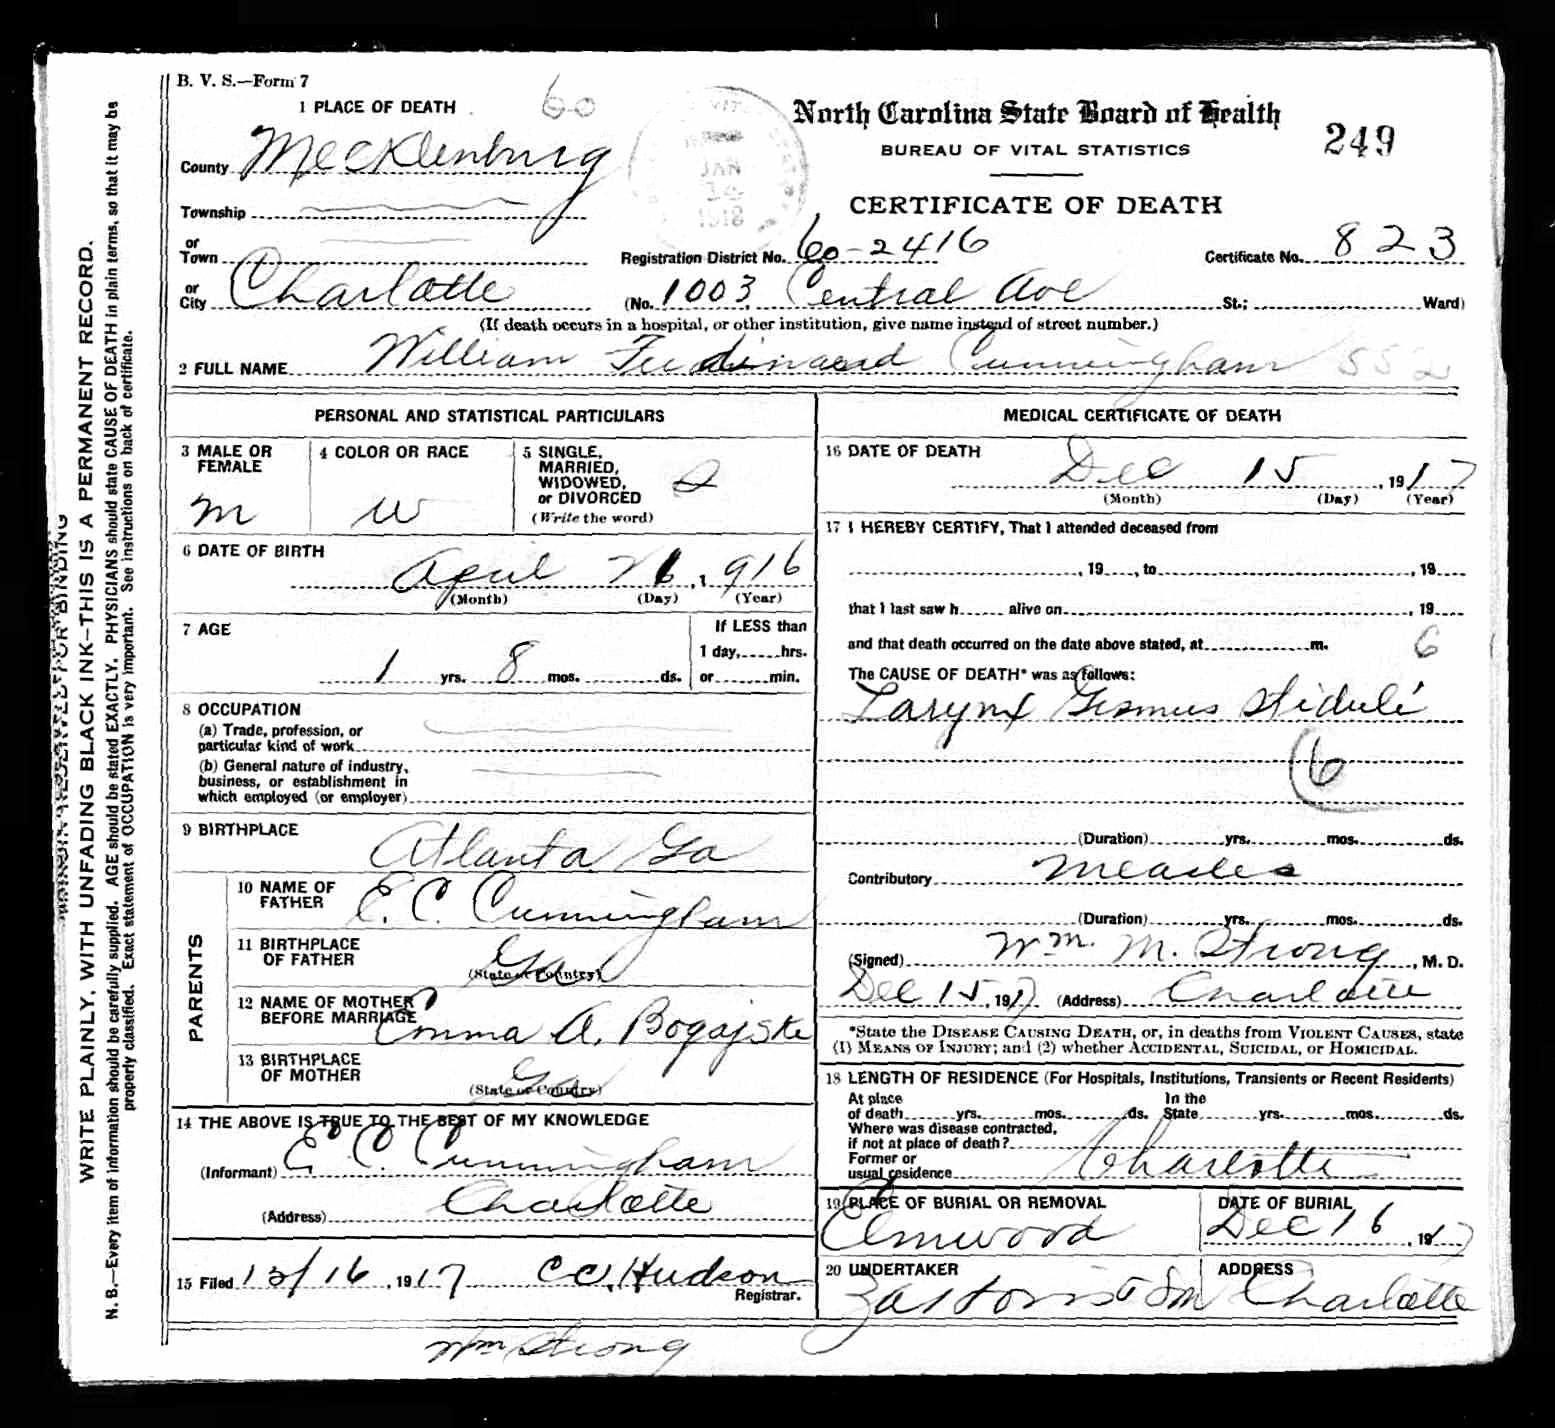 B. V. S.—Form 7
60
1 PLACE OF DEATH
North Carolina State Board of Health
249
BUREAU OF VITAL STATISTICS
JAN
1918
County Mecklenburg
CERTIFICATE OF DEATH
Township
or
Town
Registration District No. 60-2416
Certificate No. 823
or
City Charlotte
(No. 1003 Central Ave St.; Ward)
(If death occurs in a hospital, or other institution, give name instead of street number.)
2 FULL NAME William Ferdinand Cunningham 552
PERSONAL AND STATISTICAL PARTICULARS
3 MALE OR FEMALE
m
4 COLOR OR RACE
w
5 SINGLE,
MARRIED,
WIDOWED,
or DIVORCED
(Write the word)
S
6 DATE OF BIRTH
April 26, 1916
(Month) (Day) (Year)
7 AGE
1 yrs. 8 mos. ds.
If LESS than
1 day, hrs.
or min.
8 OCCUPATION
(a) Trade, profession, or
particular kind of work
(b) General nature of industry,
business, or establishment in
which employed (or employer)
9 BIRTHPLACE
Atlanta Ga
PARENTS
10 NAME OF
FATHER E. C. Cunningham
11 BIRTHPLACE
OF FATHER Ga
(State or Country)
12 NAME OF MOTHER
BEFORE MARRIAGE Emma A. Bogajske
13 BIRTHPLACE
OF MOTHER Ga
(State or Country)
14 THE ABOVE IS TRUE TO THE BEST OF MY KNOWLEDGE
(Informant) E. C. Cunningham
(Address) Charlotte
15 Filed 12/16, 1917 C C Hudson
Registrar.
Wm Strong
MEDICAL CERTIFICATE OF DEATH
16 DATE OF DEATH
Dec 15, 1917
(Month) (Day) (Year)
17 I HEREBY CERTIFY, That I attended deceased from
, 19, to , 19
that I last saw h alive on , 19
and that death occurred on the date above stated, at m.
6
The CAUSE OF DEATH* was as follows:
6
(Duration) yrs. mos. ds.
Contributory Measles
(Duration) yrs. mos. ds.
(Signed) Wm. M. Strong, M. D.
Dec 15, 1917 (Address) Charlotte
*State the DISEASE CAUSING DEATH, or, in deaths from VIOLENT CAUSES, state
(1) MEANS OF INJURY; and (2) whether ACCIDENTAL, SUICIDAL, or HOMICIDAL.
18 LENGTH OF RESIDENCE (For Hospitals, Institutions, Transients or Recent Residents)
At place In the
of death yrs. mos. ds. State yrs. mos. ds.
Where was disease contracted,
if not at place of death?
Former or
usual residence Charlotte
19 PLACE OF BURIAL OR REMOVAL
Elmwood
DATE OF BURIAL
Dec 16, 1917
20 UNDERTAKER
ADDRESS
Charlotte
WRITE PLAINLY, WITH UNFADING BLACK INK—THIS IS A PERMANENT RECORD.
N. B.—Every item of information should be carefully supplied. AGE should be stated EXACTLY. PHYSICIANS should state CAUSE OF DEATH in plain terms, so that it may be
properly classified. Exact statement of OCCUPATION is very important. See instructions on back of certificate.